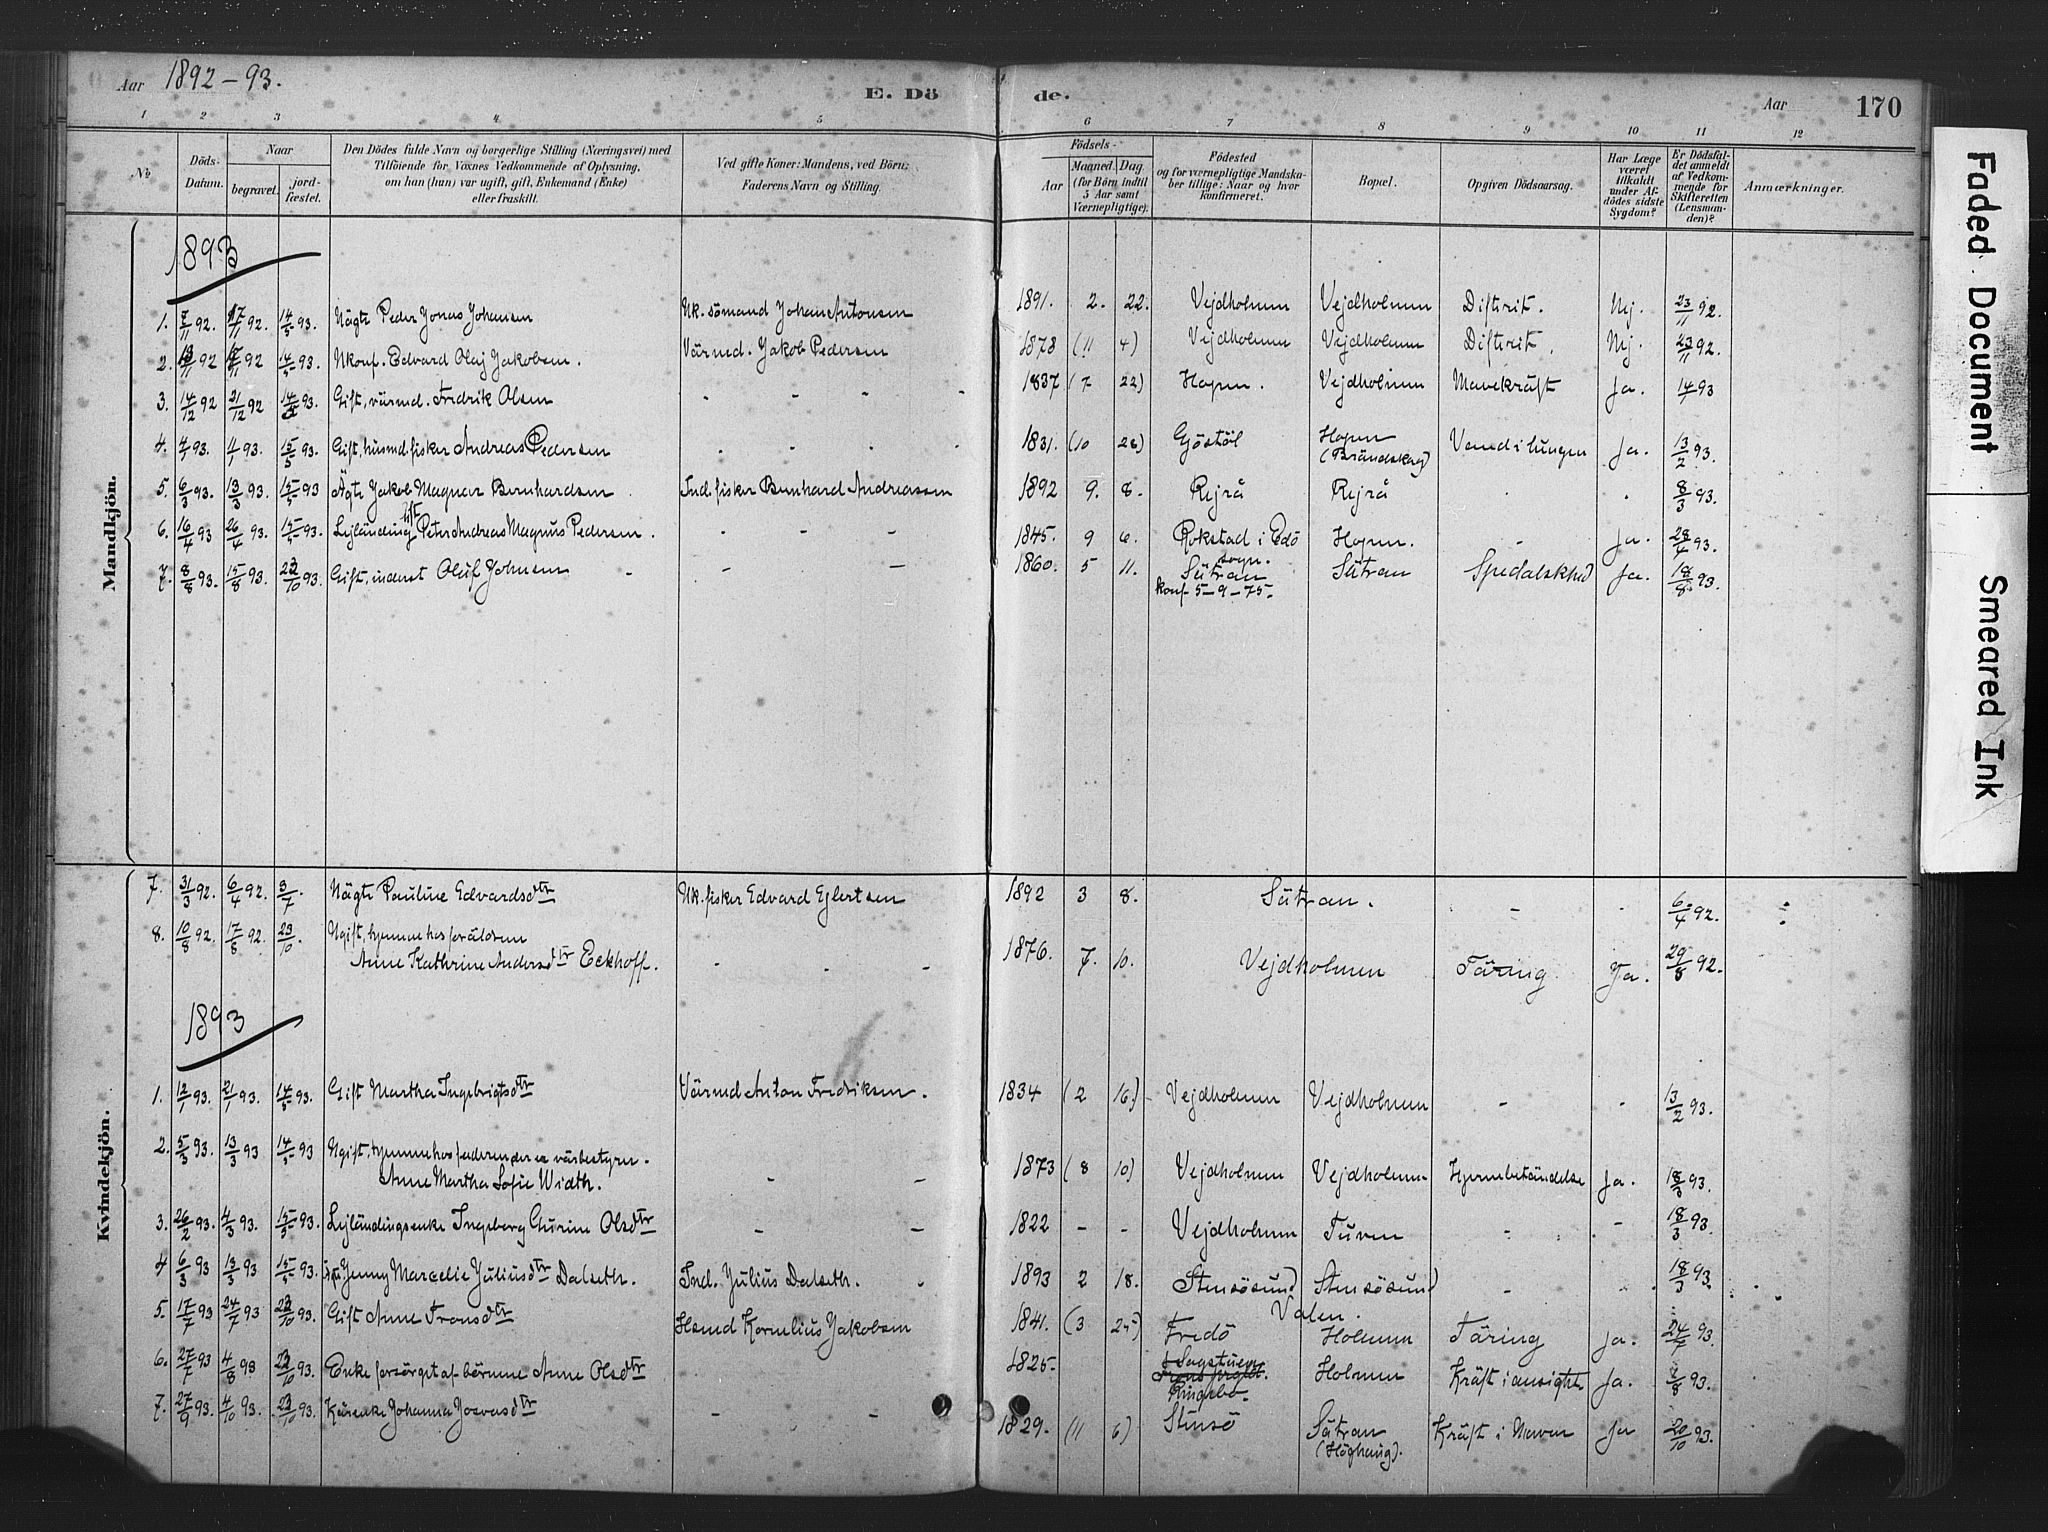 Aar 1892-93.
E. Dö
de.
Aar
170
1 2 3 4 5 6 7 8 9 10 11 12
No
Döds-Datum.
Naar
begravet.
jord-fæstet.
Den Dödes fulde Navn og borgerlige Stilling (Næringsvei) med
Tilföiende for Voxnes Vedkommende af Oplysning,
om han (hun) var ugift, gift, Enkemand (Enke)
eller fraskilt.
Ved gifte Koner: Mandens, ved Börn:
Faderens Navn og Stilling.
Födsels-
Aar
Maaned. Dag
(for Börn indtil
5 Aar samt
Værnepligtige).
Födested
og for værnepligtige Mandska-
ber tillige: Naar og hvor
konfirmeret.
Bopæl.
Opgiven Dödsaarsag.
Har Læge
været
tilkaldt
under Af-
dödes sidste
Sygdom?
Er Dödsfal-
det anmeldt
af Vedkom-
mende for
Skifteretten
(Lensman-
den)?
Anmærkninger.
Mandkjön.
1893
1. 7/11 92. 17/11 92. 14/5 93. Nägte Peder Jonas Johansen Uk. sömand Johan Antonsen 1891. 2. 22. Vejdholmen Vejdholmen Difterit. Nej. 23/11 92.
2. 13/11 92 17/11 92 14/5 93. Ukonf. Edvard Olaj Jakobsen. Värmd. Jakob Pedersen 1878 (11 4) Vejdholmen Vejdholmen Difterit. Nej. 23/11 92.
3. 14/12 92 21/12 92 14/5 93. Gift, värmd. Fredrik Olsen - - - - 1837 (7 22) Hopen. Vejdholmen Mavekräft Ja. 14/1 93
4. 4/1 93. 11/1 93. 15/5 93. Gift, husmd. fisker Andreas Pedersen - - - - 1831. (10 28) Gjöstöl Hopen Ja. 13/2 93.
5. 6/3 93. 13/3 93. 15/5 93 Ägte Jakob Magnar Bernhardsen Ind. fisker Bernhard Andreassen 1892 9. 8. Rejrå Rejrå 8/3 93.
6. 16/4 93 26/4 93. 15/5 93. Lejländing gift Peter Andreas Magnus Pedersen. - - - 1845. 9 6. Rokstad i Edö sogn. Hopen. - Ja. 28/4 93.
7. 8/8 93. 15/8 93. 23/10 93. Gift, inderst Oluf Johnsen - - - 1860. 5 11. Sätran Sätran Spedalskhed Ja. 18/8 93.
konf. 5-9-75.
Kvindekjön.
7. 31/3 92. 6/4 92. 3/7. Nägte Pauline Edvardsdtr Uk. fisker Edvard Ejlertsen 1892 3 8. Sätran. - - 6/4 92.
8. 10/8 92. 17/8 92. 23/10. Ugift, hjemme hos forældrene
Anne Kathrine Andersdtr Eckhoff. - - - 1876. 7. 10. Vejdholmen Täring Ja. 29/8 92.
1893
1. 12/1 93. 21/1 93. 14/5 93. Gift Martha Ingebrigtsdtr Värmd Anton Fredriksen. 1834 (2 16.) Vejdholmen Vejdholmen - - 13/2 93.
2. 5/3 93. 13/3 93 14/5 93 Ugift, hjemme hos faderen
Anne Martha Sofie Width. - - 1873 (8 10) Vejdholmen Vejdholmen Hjernebetändelse Ja. 18/3 93.
3. 26/2 93. 4/3 93. 15/5 93. Lejländingsenke Ingeborg Gurine Olsdtr - - 1822 - - Vejdholmen Tuven - - 18/3 93.
4 6/3 93 13/3 93 15/5 93. Jenny Marcelie Juliusdtr Dalseth. Ind. Julius Dalseth. 1893 2 18. Stensösund Stensösund - 18/3 93.
5. 17/7 93 24/7 93 23/10 93. Gift Anne Tronsdtr Hsmd Kornelius Jakobsen 1841. (3 25) Fredö Valen. Holmen Täring Ja. 24/7 93.
6. 27/7 93 4/8 93 23/10 93. Enke forsörget af börnene Anne Olsdtr 1825. Ringebo. Holmen Kräft i ansigtet Ja. 8/8 93.
7. 27/9 93. 4/10 93. 23/10 93. Johanna Josvasdtr - - 1829. (11 6) Stensö Sätran Kräft i Maven Ja 20/10 93.
(Höghaug).
Faded Document
Smeared Ink